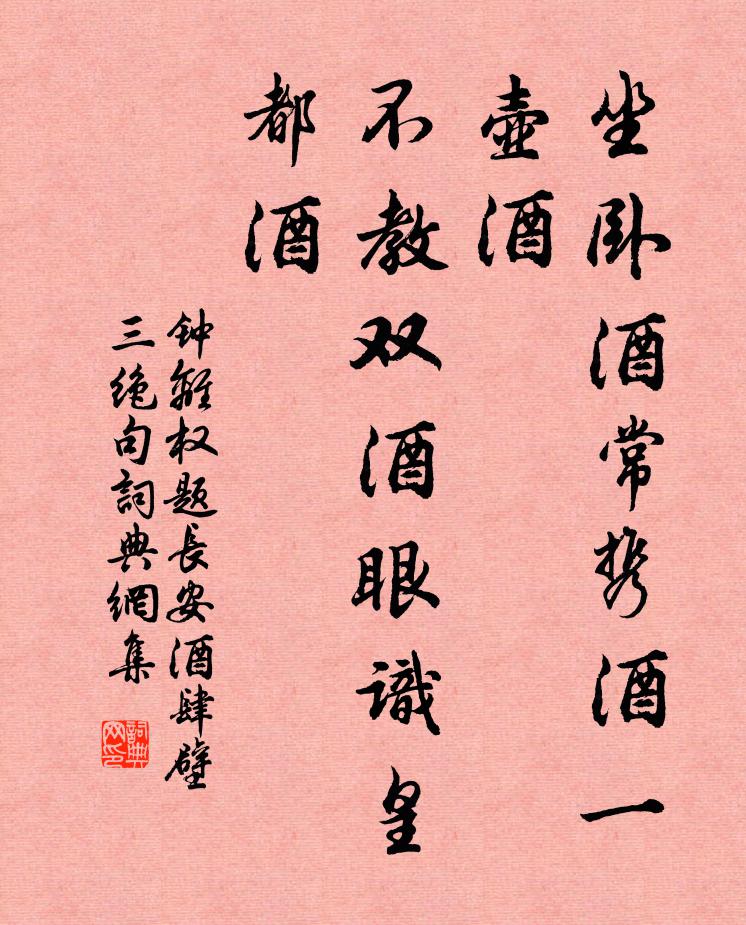 坐卧酒常携酒一
壺酒
不教双酒眼識皇
都酒
钟離权题長安酒肆壁
三絶句詞典網集
詞典
网印